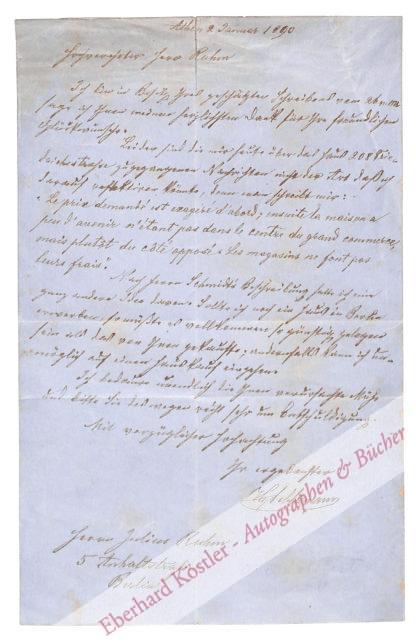 Athen 2 Januar 1890
Hochverehrter Herr Ruhm
Ich bin im Besitz Ihres geschätzten Schreibens vom 26 v. M.
sage ich Ihnen meinen herzlichsten Dank für Ihre freundlichen
Glückwünsche.
Leider sind die mir heute über das Haus 208
zugegangenen Nachrichten nicht der Art daß ich
darauf reflektiren könnte, denn man schreibt mir:
"Le prix demandé est exagéré d'abord; ensuite la maison a
peu d'avenir n'étant pas dans le centre du grand commerce,
mais plutôt du côté opposé. Les magasins ne font pas
leurs frais"
Nach Herrn Schmidts Beschreibung hatte ich eine
ganz andere Idee davon. Sollte ich noch ein Haus in Berlin
erwerben, so müßte es vollkommen so günstig gelegen
sein als das von Ihnen gekaufte; andernfalls kann ich un-
möglich auf einen Hauskauf eingehen.
Ich bedaure unendlich die Ihnen verursachte Mühe
und bitte Sie deswegen recht sehr um Entschuldigung.
Mit vorzüglicher Hochachtung
Ihr ergebenster
Hy Schliemann
Herrn Julius Ruhm
5 Anhaltstraße
Berlin
Eberhard Köstler - Autographen & Bücher